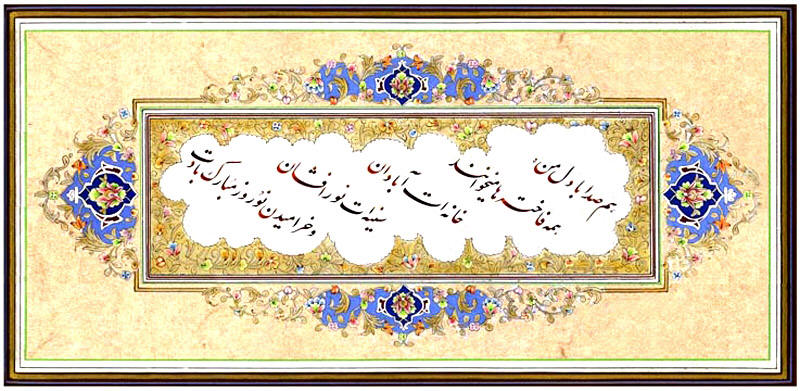 هم صدا با دل من
همه فاخته ها میخوانند
خانه ات آبادان
سینه ات نور افشان
و خرامیدن نوروز مبارک بادت